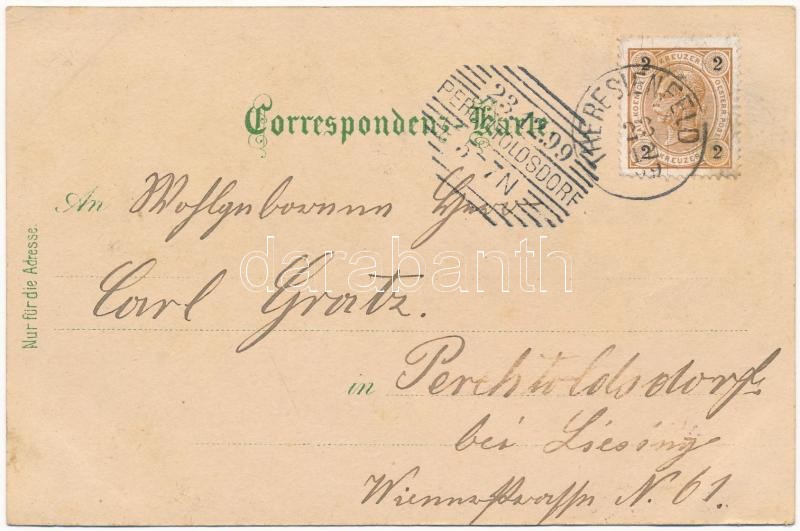 Correspondenz-Karte
2 KREUZER 2
2 KREUZER 2
THERESIENFELD
23 12 99
23.12.99
PERCHTOLDSDORF
5-7N
An Wohlgeborenen Herrn
Carl Gratz.
in Perchtoldsdorf
bei Liesing
Wienerstrasse N. 61.
Nur für die Adresse.
darabanth